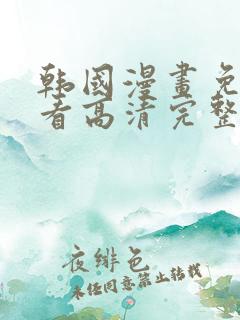 韩國漫畫免
看高清完整
夜緋色
未经同意禁止转载